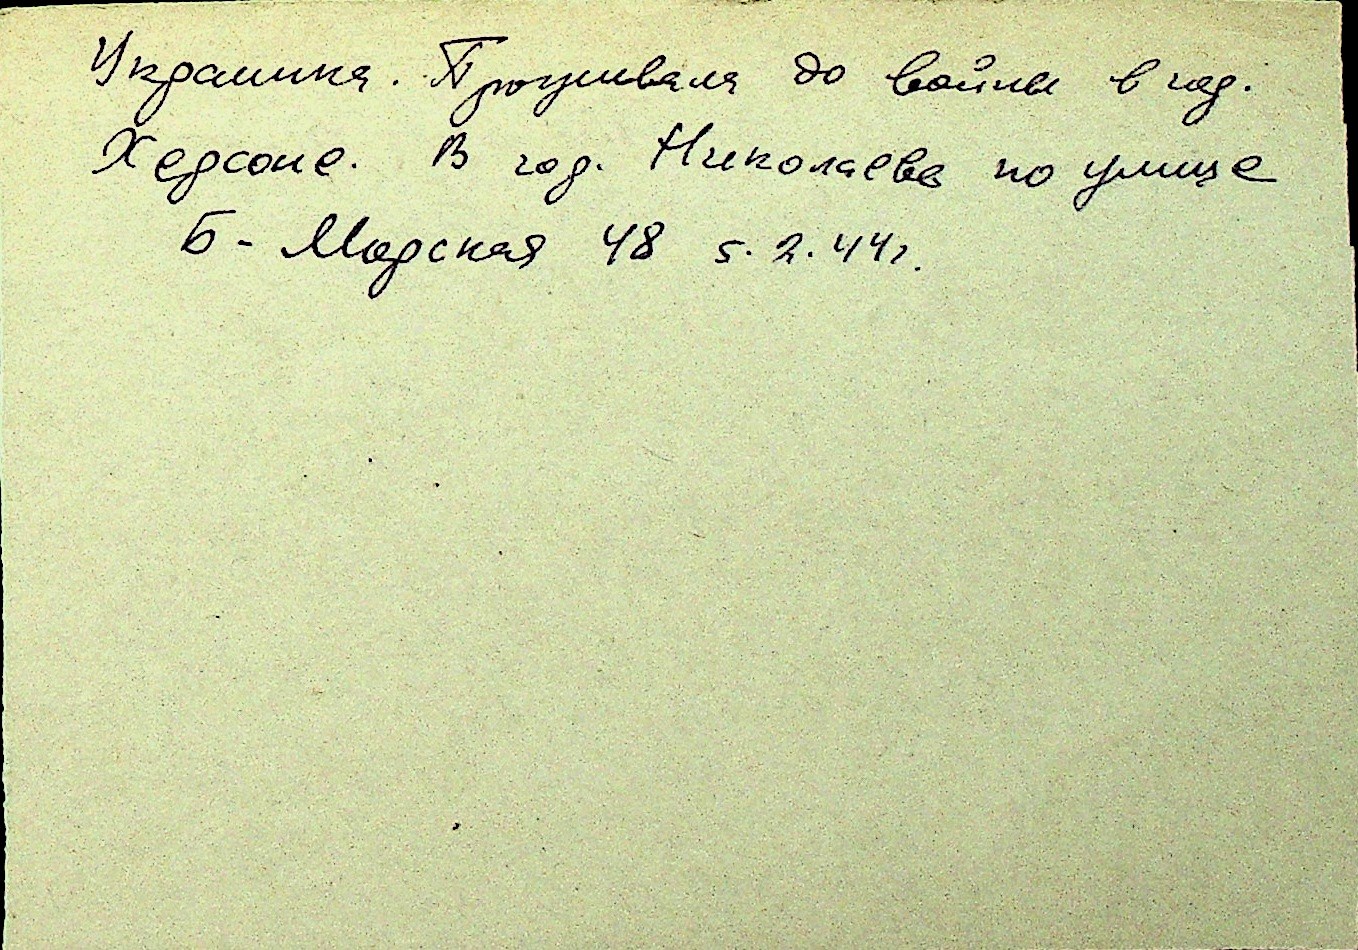 Украинка. Проживала до войны в гор.
Херсоне. В гор. Николаеве по улице
Б-Морская 48 5.2.44г.